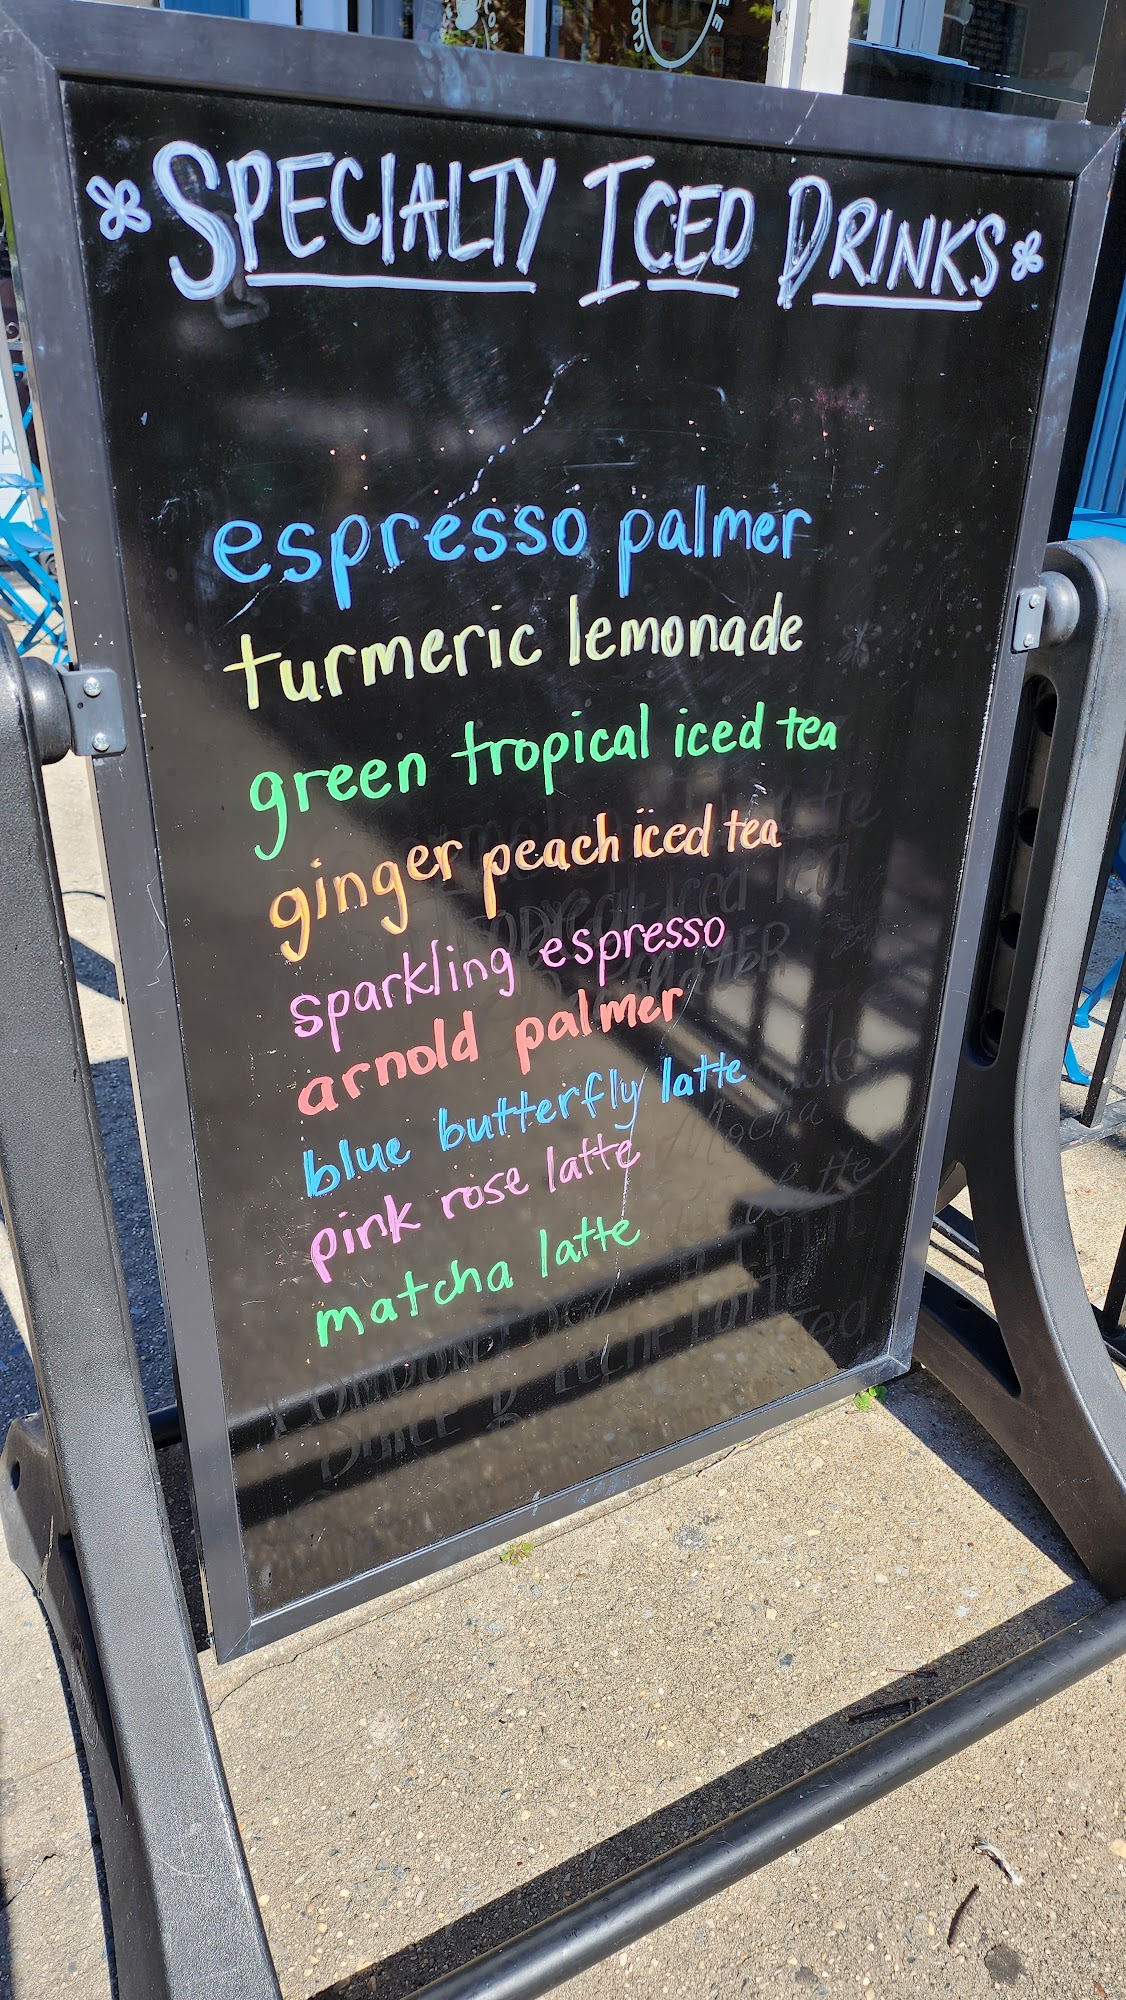 SPECIALTY ICED DRINKS
espresso palmer
turmeric lemonade
green tropical iced tea
ginger peach iced tea
sparkling espresso
arnold palmer
blue butterfly latte
pink rose latte
matcha latte